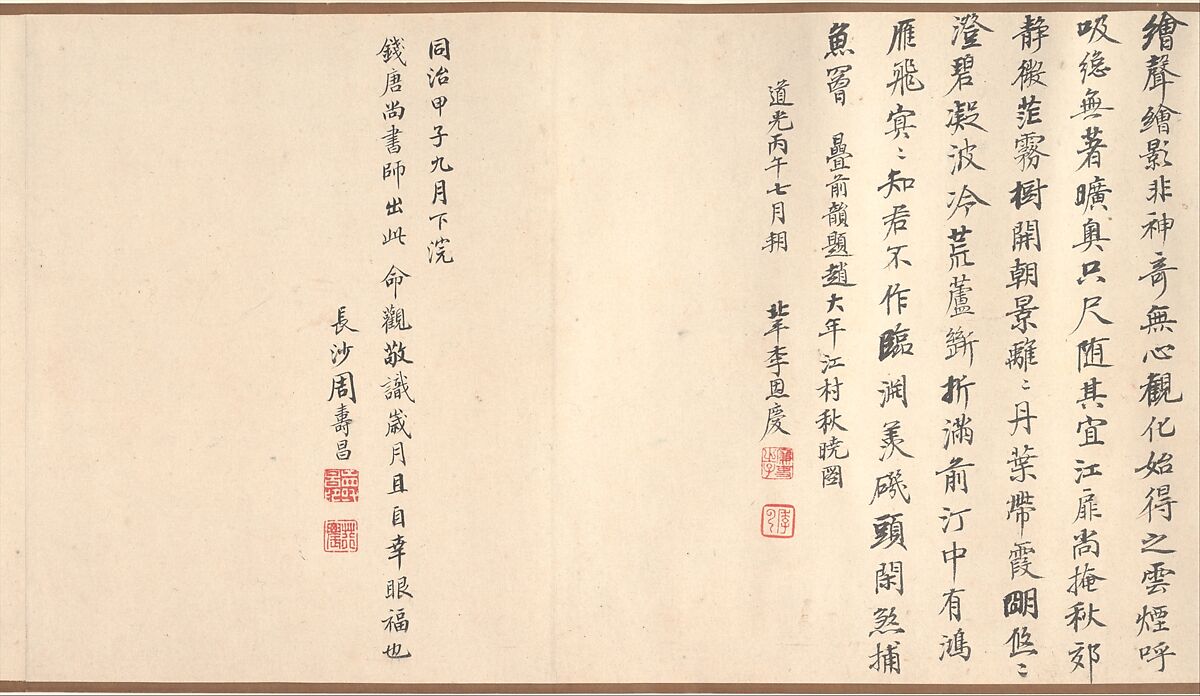 繪聲繪影非神竒無心觀化始得之雲煙呼
吸總無著曠奥只尺随其宜江扉尚掩秋郊
静微茫霧樹開朝景離〻丹葉帶霞明悠〻
澄碧凝波冷荒蘆斷折滿前汀中有鴻
雁飛冥〻知君不作臨渊羡磯頭閑煞捕
魚罾 疊前韻題趙大年江村秋曉圖
道光丙午七月朔 北平李恩慶
同治甲子九月下浣
錢唐尚書師出此 命觀敬識歲月且自幸眼福也
長沙周壽昌